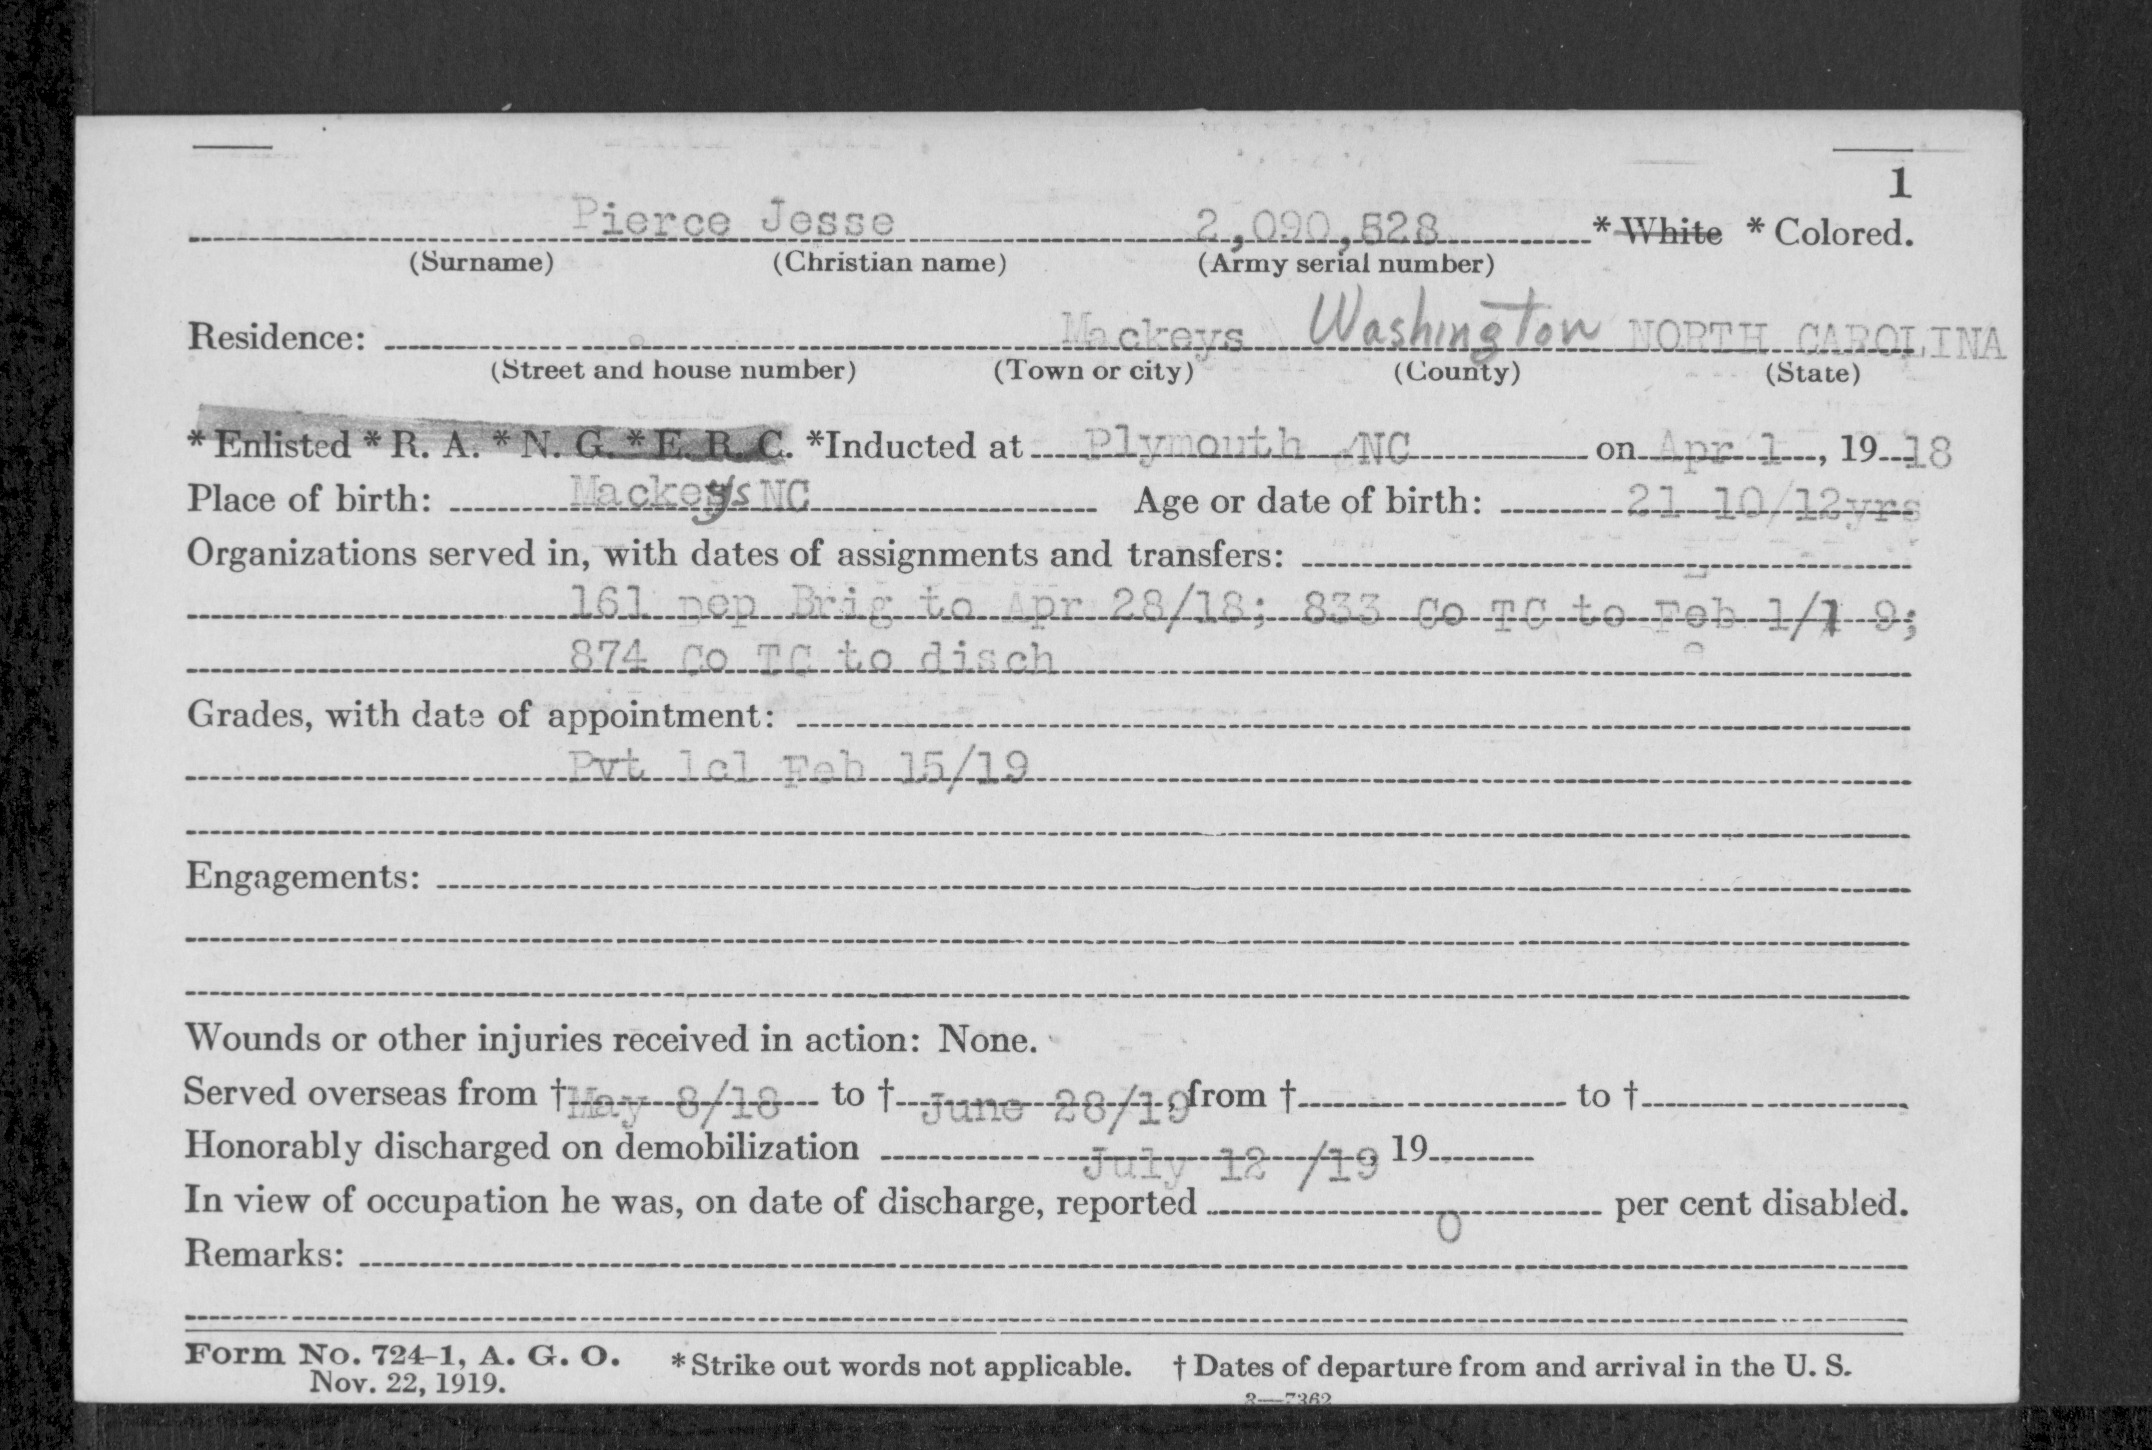 1
Pierce Jesse 2,090,528 * White * Colored.
(Surname) (Christian name) (Army serial number)
Residence: Mackeys Washington NORTH CAROLINA
(Street and house number) (Town or city) (County) (State)
* Enlisted * R. A. * N. G. * E. R. C. *Inducted at Plymouth NC on Apr 1, 1918
Place of birth: Mackeys NC Age or date of birth: 21 10/12yrs
Organizations served in, with dates of assignments and transfers:
161 Dep Brig to Apr 28/18; 833 Co TC to Feb 1/19;
874 Co TC to disch
Grades, with date of appointment:
Pvt 1cl Feb 15/19
Engagements:
Wounds or other injuries received in action: None.
Served overseas from † May 8/18 to † June 28/19, from † to †
Honorably discharged on demobilization July 12 /19, 19
In view of occupation he was, on date of discharge, reported 0 per cent disabled.
Remarks:
Form No. 724-1, A. G. O. * Strike out words not applicable. † Dates of departure from and arrival in the U. S.
Nov. 22, 1919. 3—7362